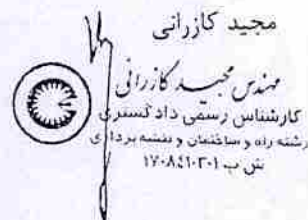 مجید کازرانی
مهندس مجید کازرانی
کارشناس رسمی دادگستری
رشته راه و ساختمان و نقشه برداری
ش پ ۱۷۰۸٤۱۰۲۰۱